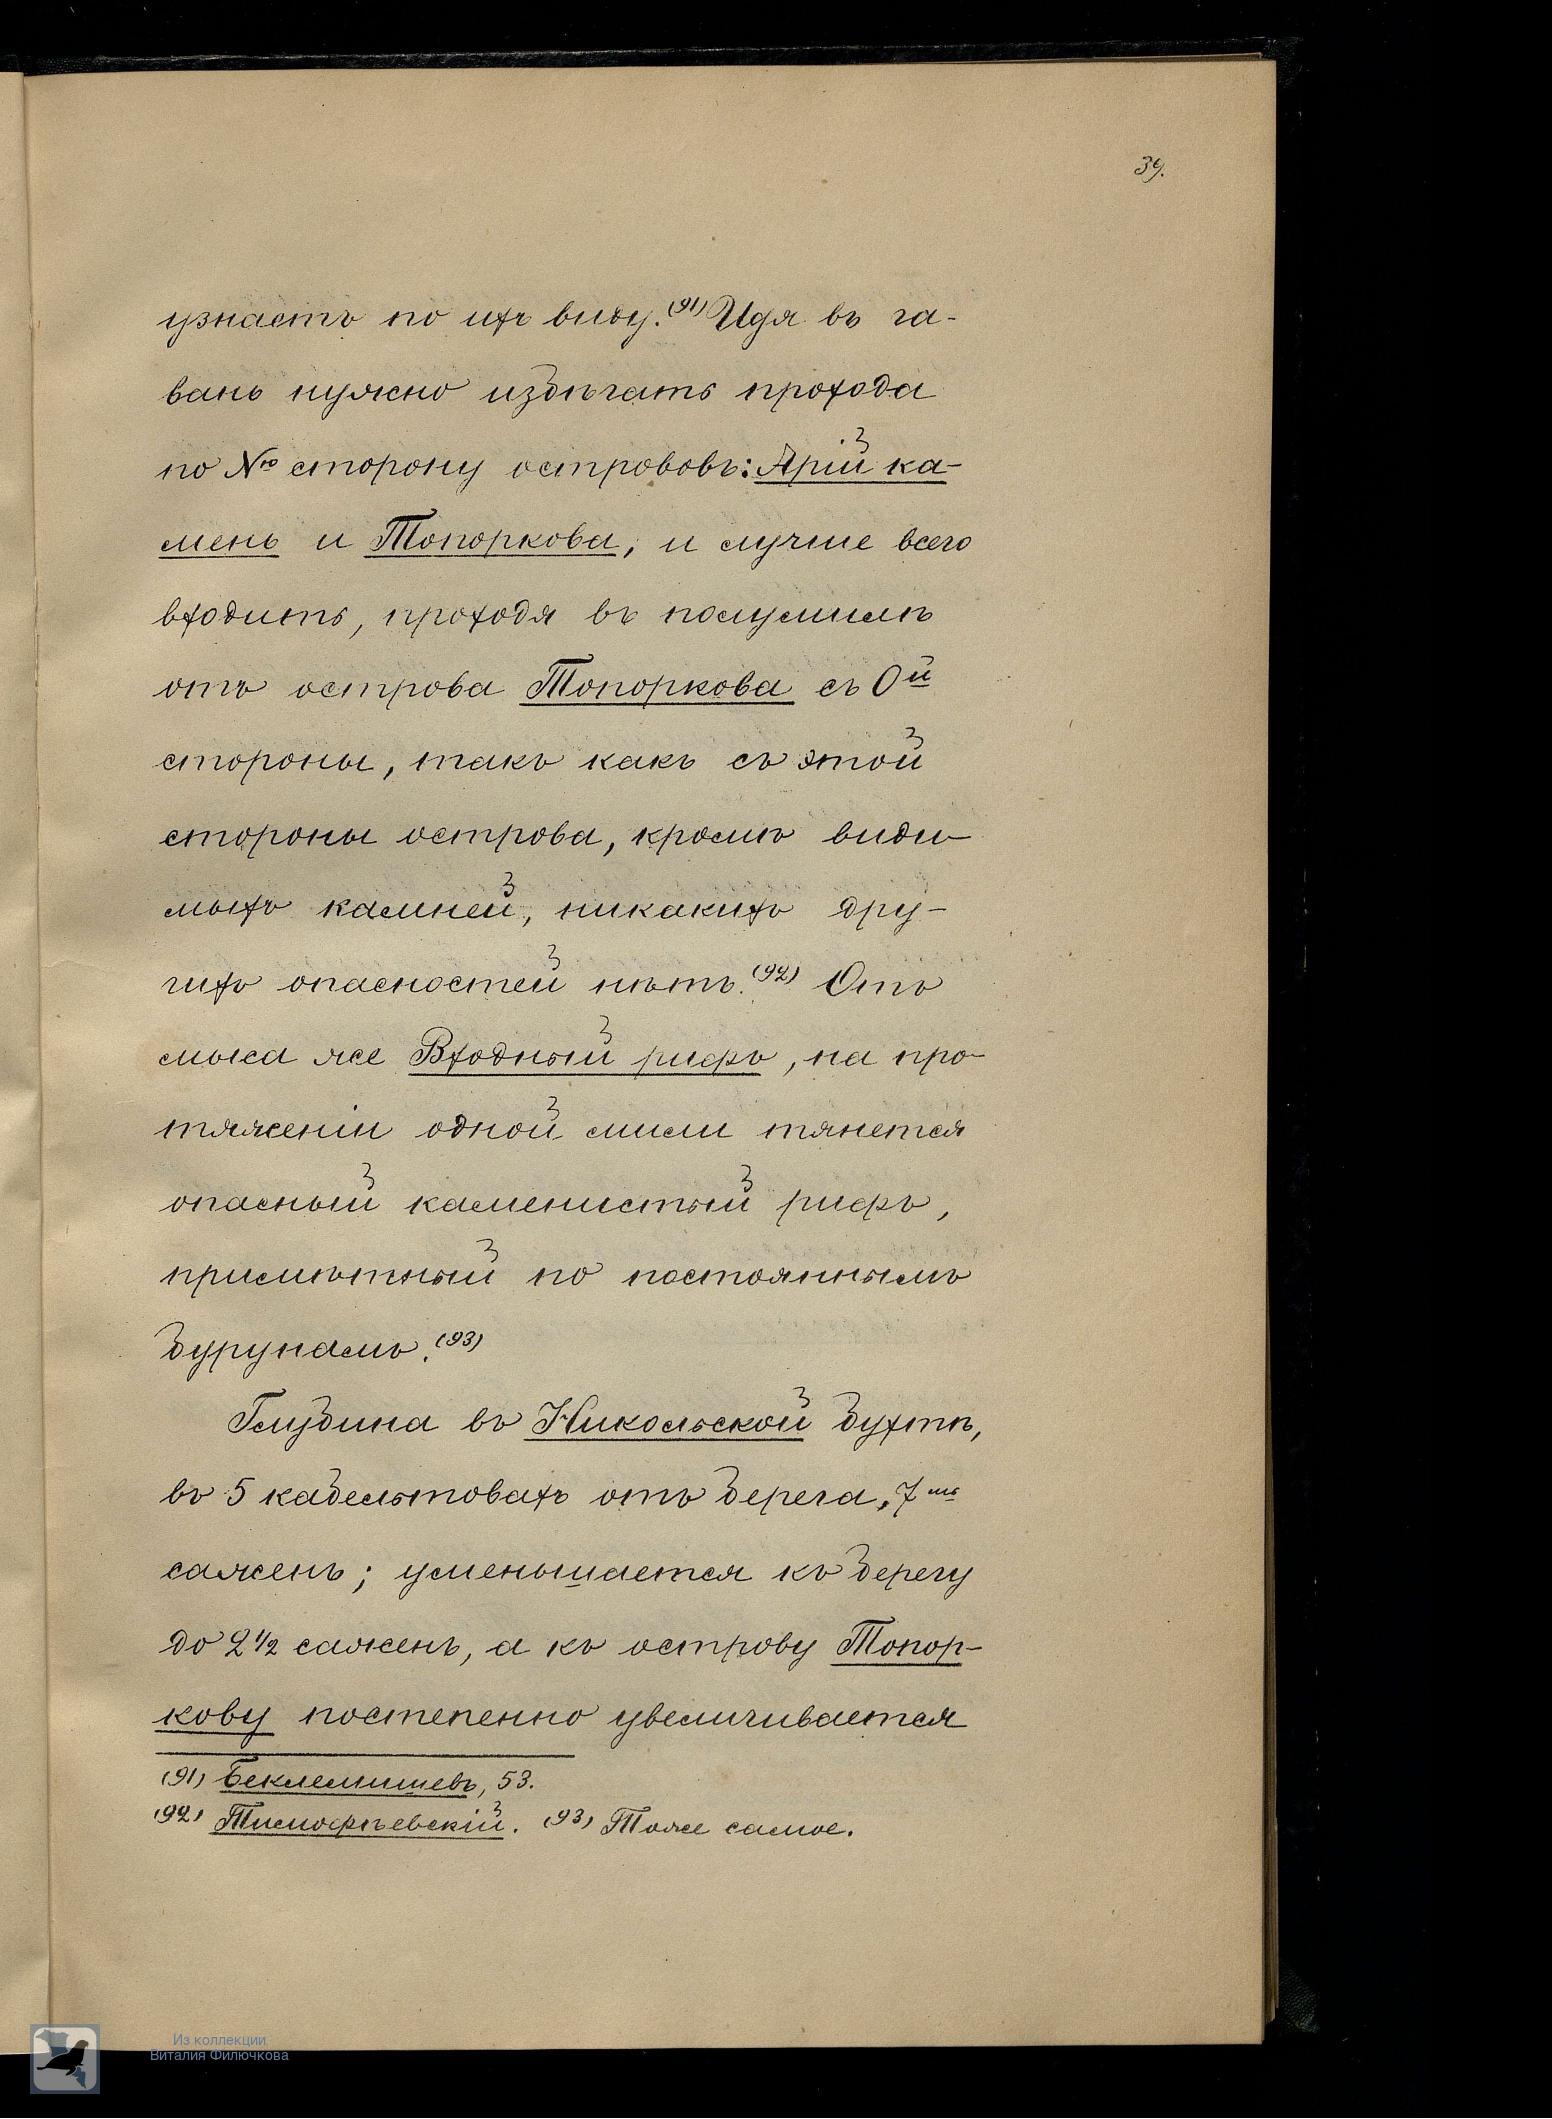 39.
узнаетъ по ихъ виду.(91) Идя въ га-
вань нужно избѣгать прохода
по Nю сторону острововъ: Арій ка-
мень и Топоркова, и лучше всего
входить, проходя въ полумилѣ
отъ острова Топоркова съ Oй
стороны, такъ какъ съ этой
стороны острова, кромѣ види-
мыхъ камней, никакихъ дру-
гихъ опасностей нѣтъ.(92) Отъ
мыса же Входный рифъ, на про-
тяженіи одной мили тянется
опасный каменистый рифъ,
примѣтный по постояннымъ
бурунамъ.(93)
Глубина въ Никольской бухтѣ,
въ 5 кабельтовахъ отъ берега, 7мь
сажень; уменьшается къ берегу
до 2 1/2 сажень, а къ острову Топор-
кову постепенно увеличивается
(91) Беклемишевъ, 53.
(92) Тимофѣевскій. (93) Тоже самое.
Из коллекции
Виталия Филючкова